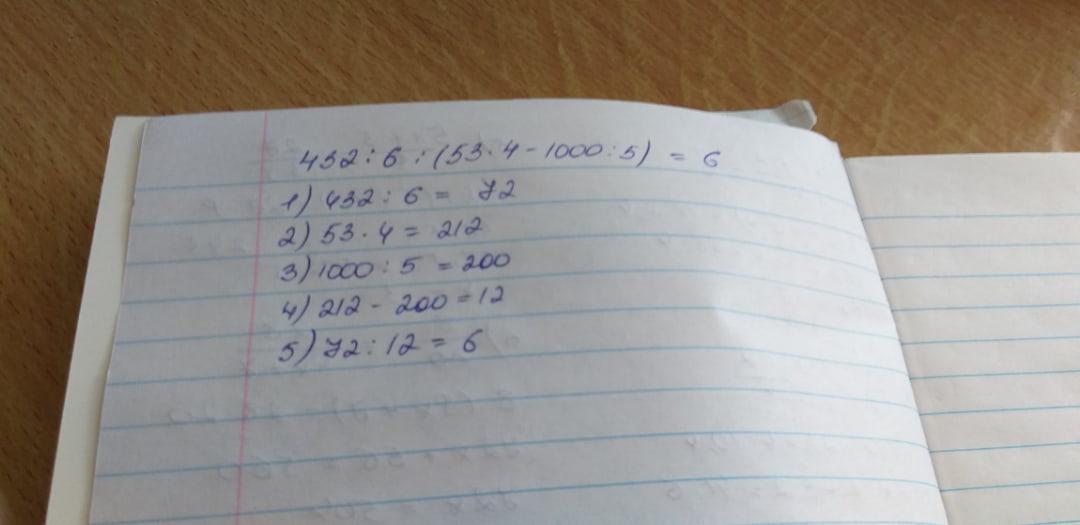 432 : 6 : (53 · 4 - 1000 : 5) = 6
1) 432 : 6 = 72
2) 53 · 4 = 212
3) 1000 : 5 = 200
4) 212 - 200 = 12
5) 72 : 12 = 6